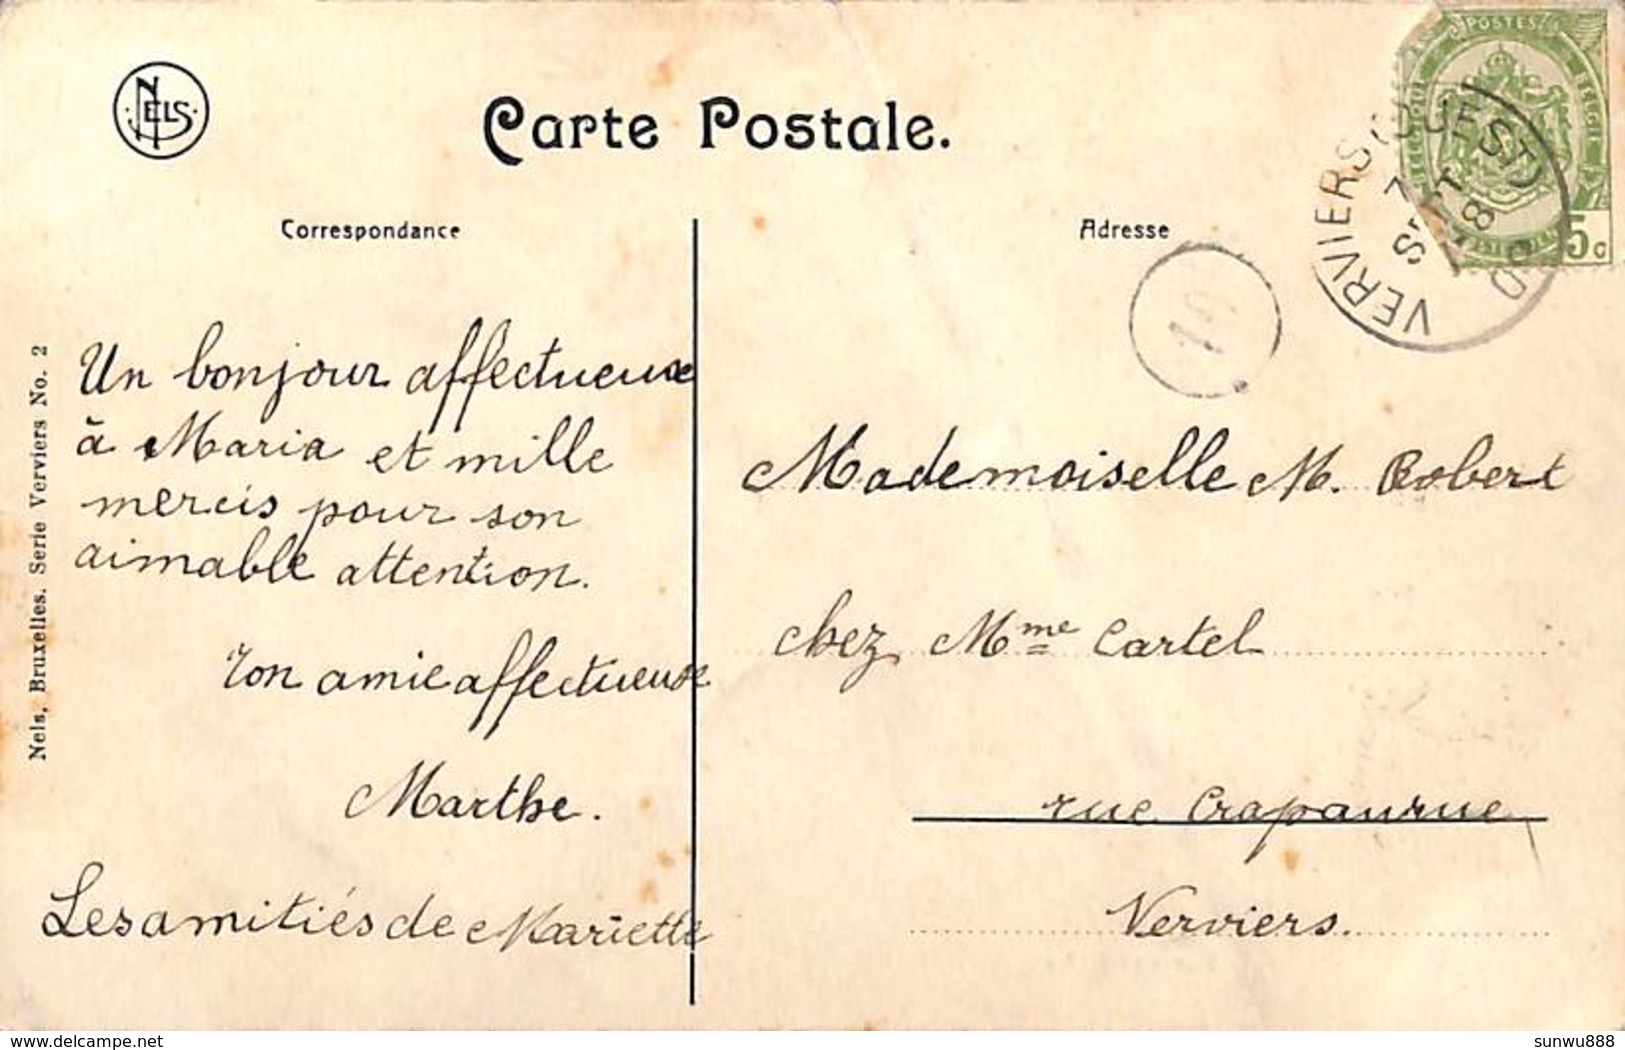 NELS
Carte Postale.
POSTES
BELGIQUE BELGIE
5 c
VERVIERS (OUEST)
7
SEPT
18
19
Correspondance
Adresse
Nels, Bruxelles. Serie Verviers No. 2
Un bonjour affectueuse
à Maria et mille
mercis pour son
aimable attention.
Ton amie affectueuse
Marthe.
Les amitiés de Mariette
Mademoiselle M. Robert
chez Mme Cartel
rue Crapaurue
Verviers.
delcampe.net
sunwu888